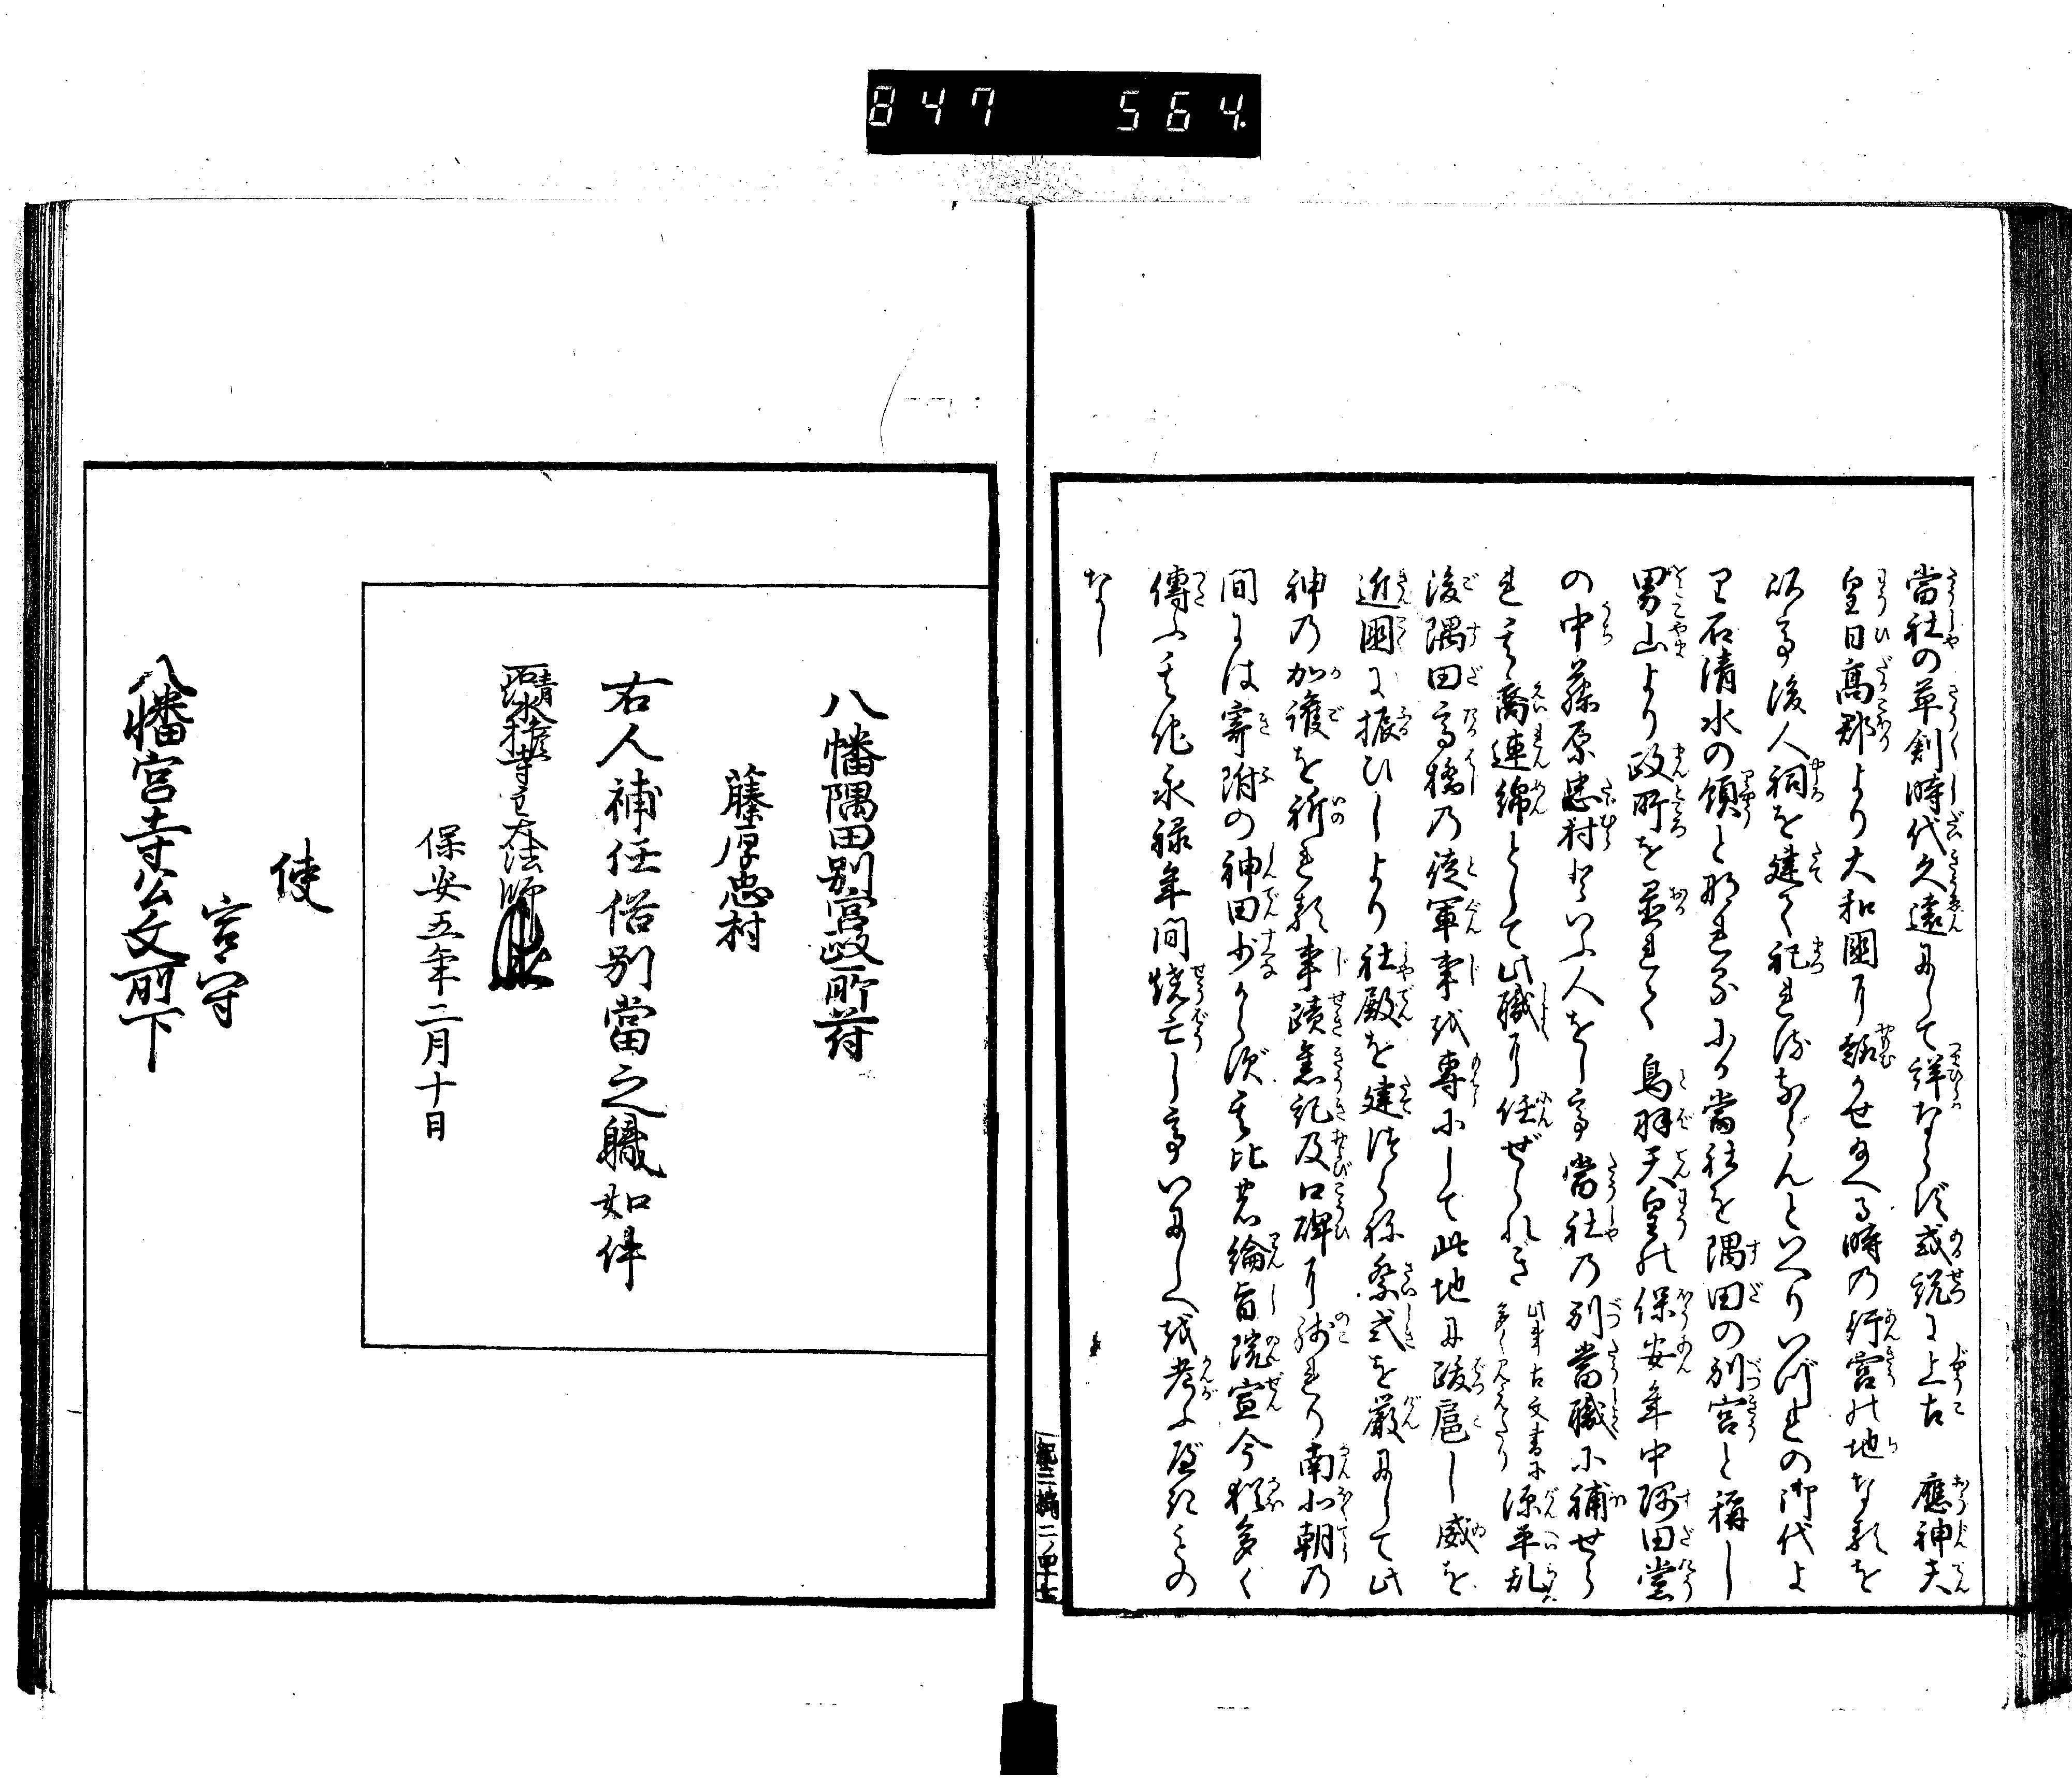 847 564
當社の草創時代久遠にして詳ならず或説に上古 應神天
皇日高郡より大和國に趣かせ給へる時の行宮の地なるを
以て後人祠を建て祀れるならんといへりいづれの御代よ
り石清水の領となれるにか當社を隅田の別宮と稱し
男山より政所を置れて 鳥羽天皇の保安年中隅田黨
の中藤原忠村といふ人をして當社の別當職に補せら
れ其裔連綿として此職に任ぜられき
此事古文書に
多く見えたり
源平乱
後隅田高橋の徒軍事を專にして此地に跋扈し威を
近國に振ひしより社殿を建つらね祭式を嚴にして此
神の加護を祈れる事蹟舊記及口碑に殘れり南北朝の
間には寄附の神田少からず其比の綸旨院宣今猶多く
傳ふ其他永禄年間燒亡していにしへを考ふべきもの
なし
紀三編二ノ四十七
八幡隅田別宮政所符
藤原忠村
右人補任俗別當之職如件
法師
保安五年二月十日
使
宮守
八幡宮寺公文所下